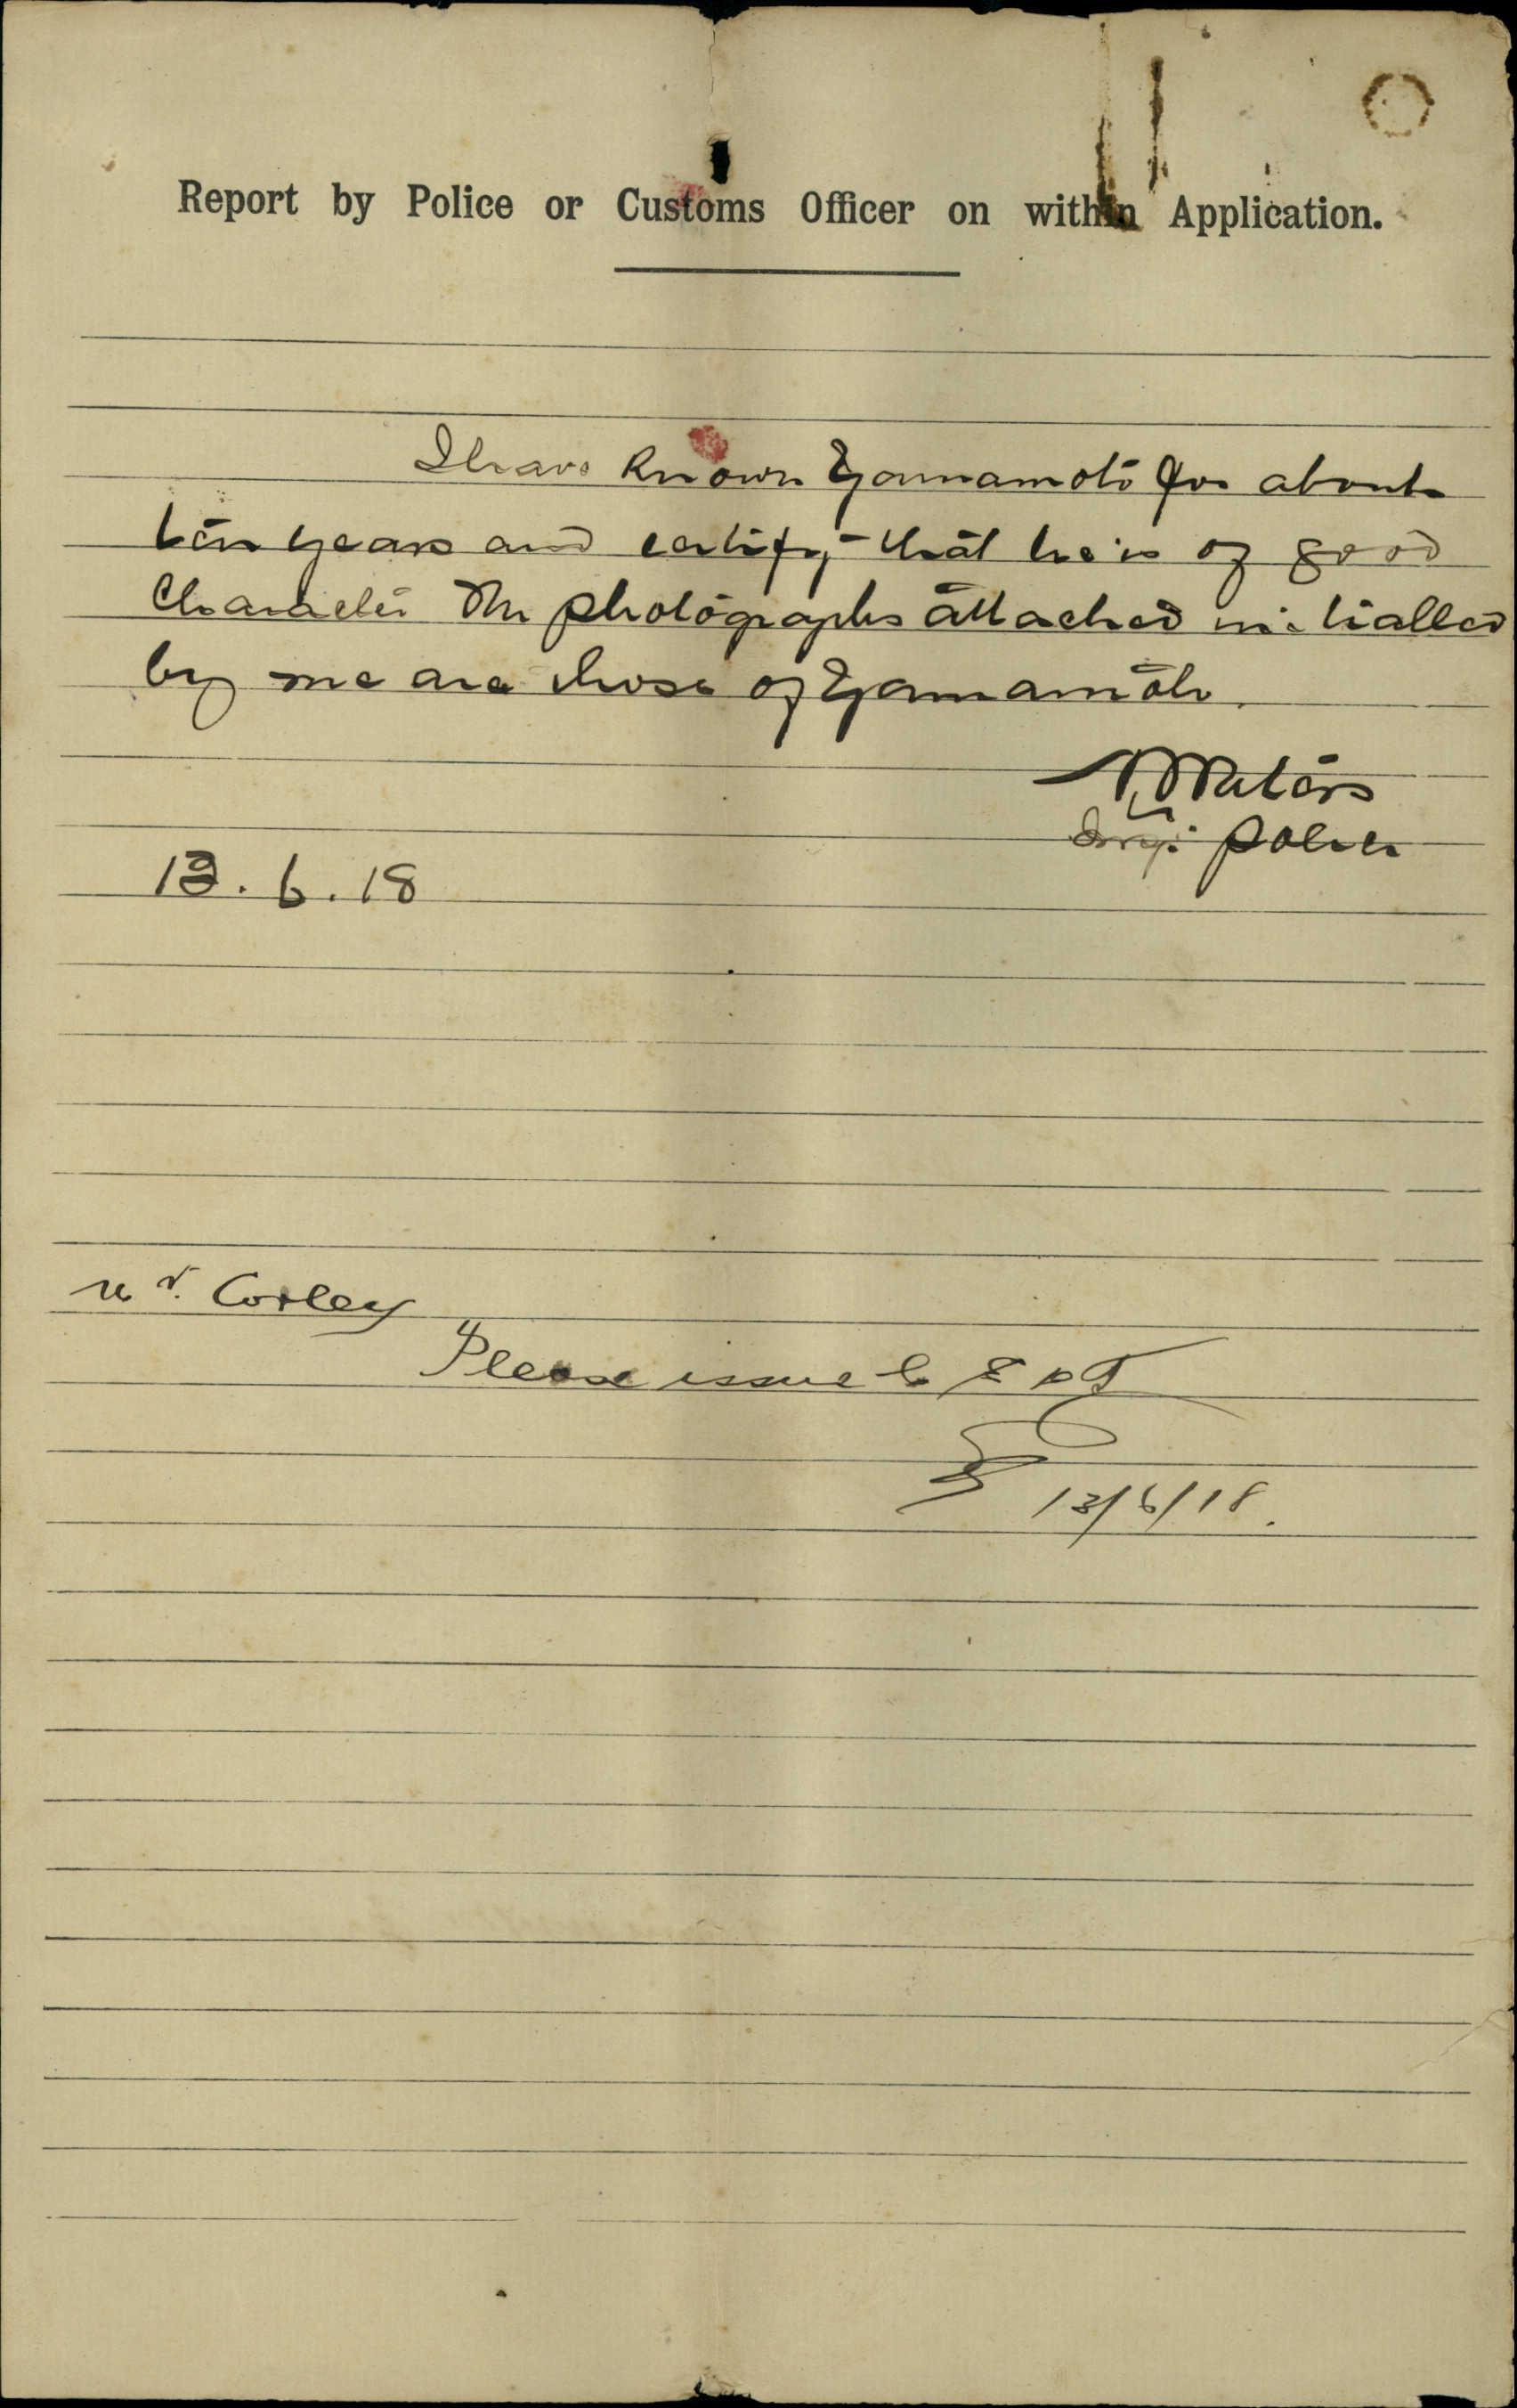 Report by Police or Customs Officer on within Application.
I have known Yamamoto for about
ten years and certify that he is of good
Character The photographs attached initialled
by me are those of Yamamoto.
Waters
Insp: Police
13.6.18
Mr. Corley
Please issue C E D T
13/6/18.